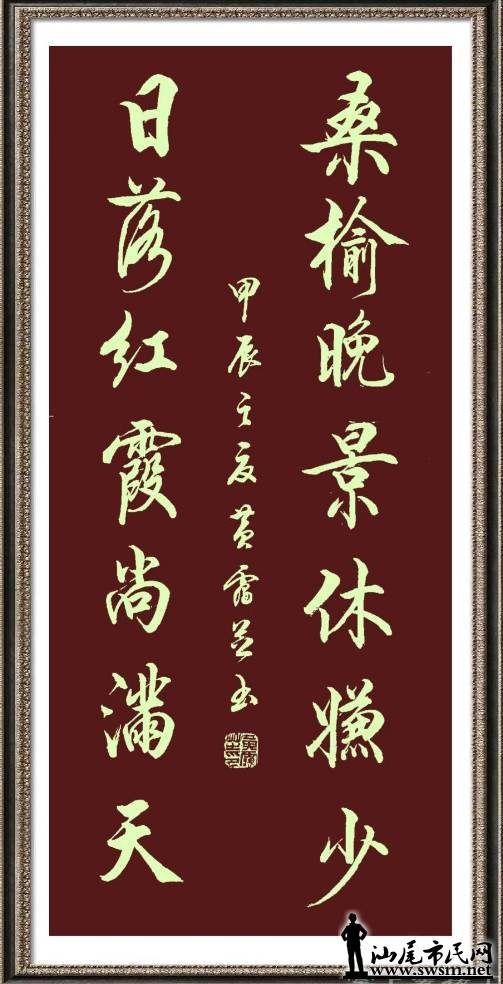 桑榆晚景休嫌少
日落红霞尚滿天
甲辰之夏黄书
汕尾市民网
www.swsm.net